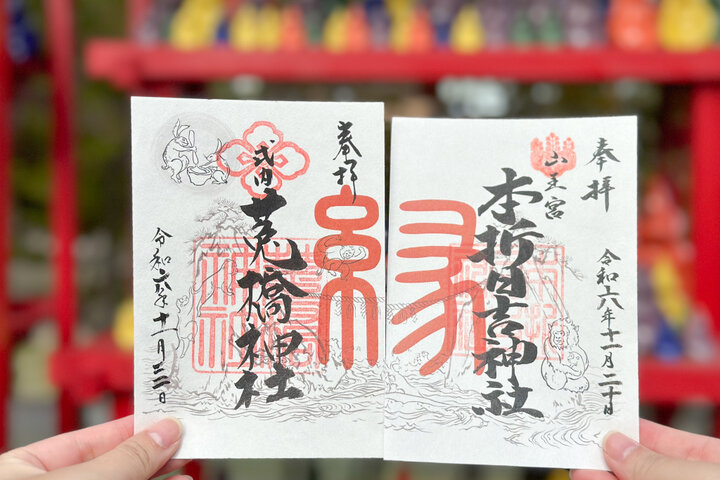 奉拝
式内
菟橋神社
令和六年十一月
縁
奉拝
山王宮
本折日吉神社
令和六年十一月二十日